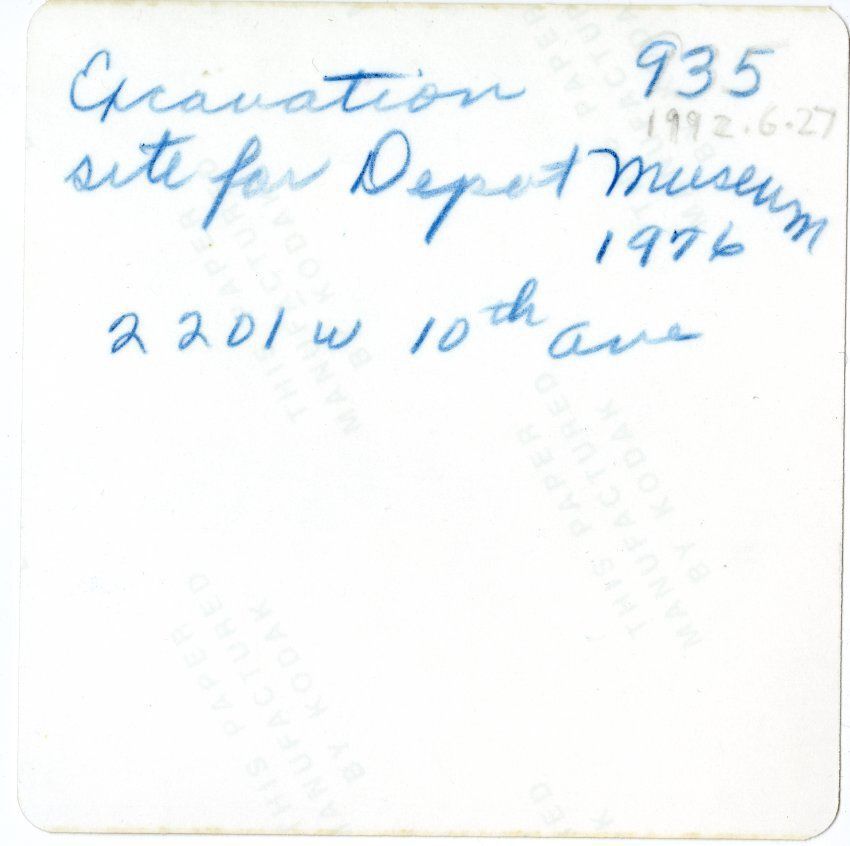 Excavation 935
1992.6.27
site for Depot Museum
1976
2201 W 10th Ave
THIS PAPER
MANUFACTURED
BY KODAK
THIS PAPER
MANUFACTURED
BY KODAK
THIS PAPER
MANUFACTURED
BY KODAK